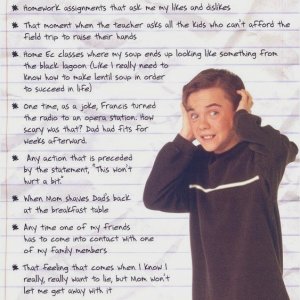 * Homework assignments that ask me my likes and dislikes
* That moment when the teacher asks all the kids who can't afford the
field trip to raise their hands
* Home Ec classes where my soup ends up looking like something from
the black lagoon (Like I really need to
know how to make lentil soup in order
to succeed in life)
* One time, as a joke, Francis turned
the radio to an opera station. How
scary was that? Dad had fits for
weeks afterward.
* Any action that is preceded
by the statement, "This won't
hurt a bit."
* When Mom shaves Dad's back
at the breakfast table
* Any time one of my friends
has to come into contact with one
of my family members
* That feeling that comes when I know I
really, really want to lie, but Mom won't
let me get away with it